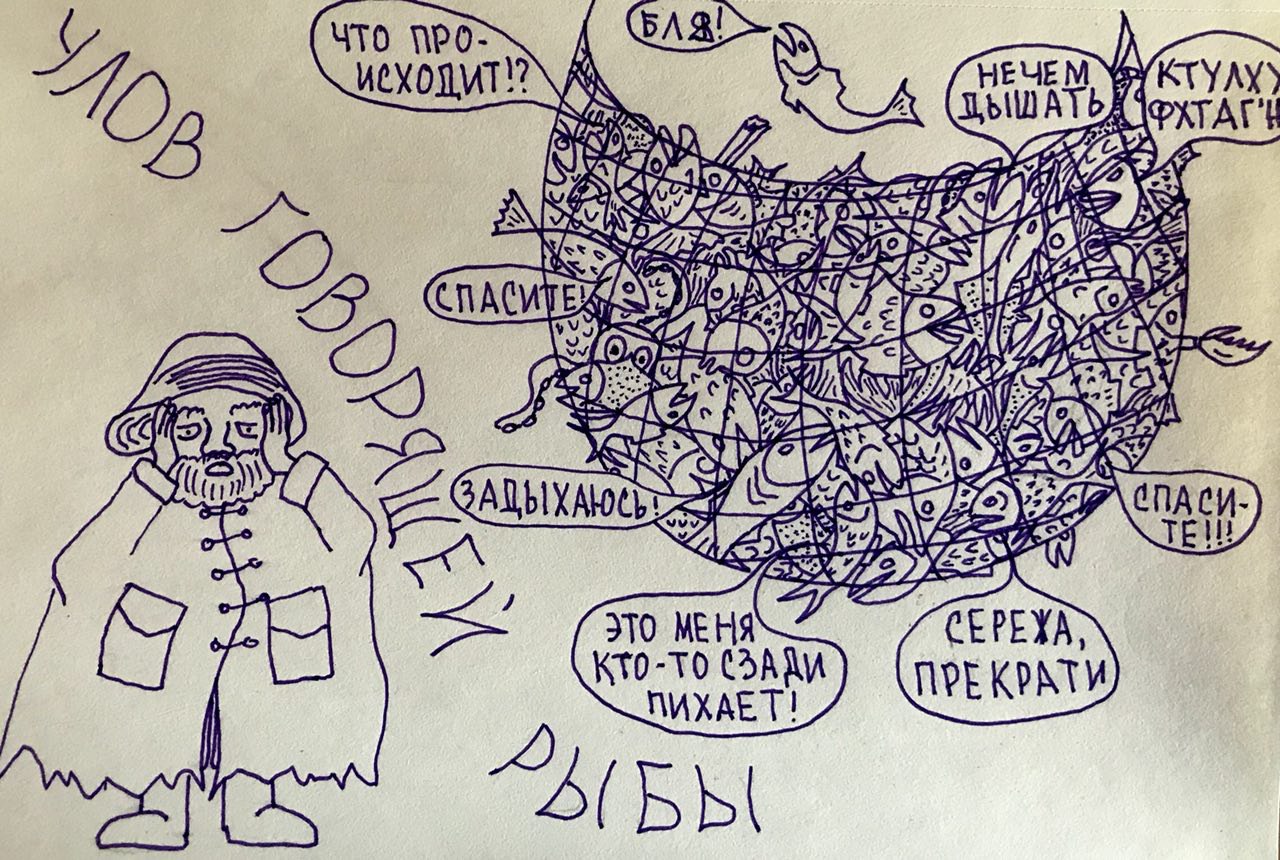 УЛОВ ГОВОРЯЩЕЙ РЫБЫ
ЧТО ПРО-
ИСХОДИТ!?
БЛЯ!
НЕЧЕМ
ДЫШАТЬ
КТУЛХУ
ФХТАГ'Н
СПАСИТЕ!
ЗАДЫХАЮСЬ!
СПАСИ-
ТЕ!!!
ЭТО МЕНЯ
КТО-ТО СЗАДИ
ПИХАЕТ!
СЕРЕЖА,
ПРЕКРАТИ